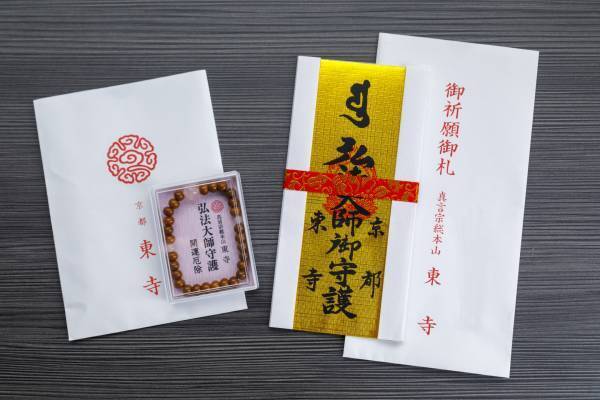 京都 東寺
真言宗総本山 東寺
弘法大師守護
開運厄除
弘法大師御守護
京都
東寺
御祈願御札
真言宗総本山 東寺